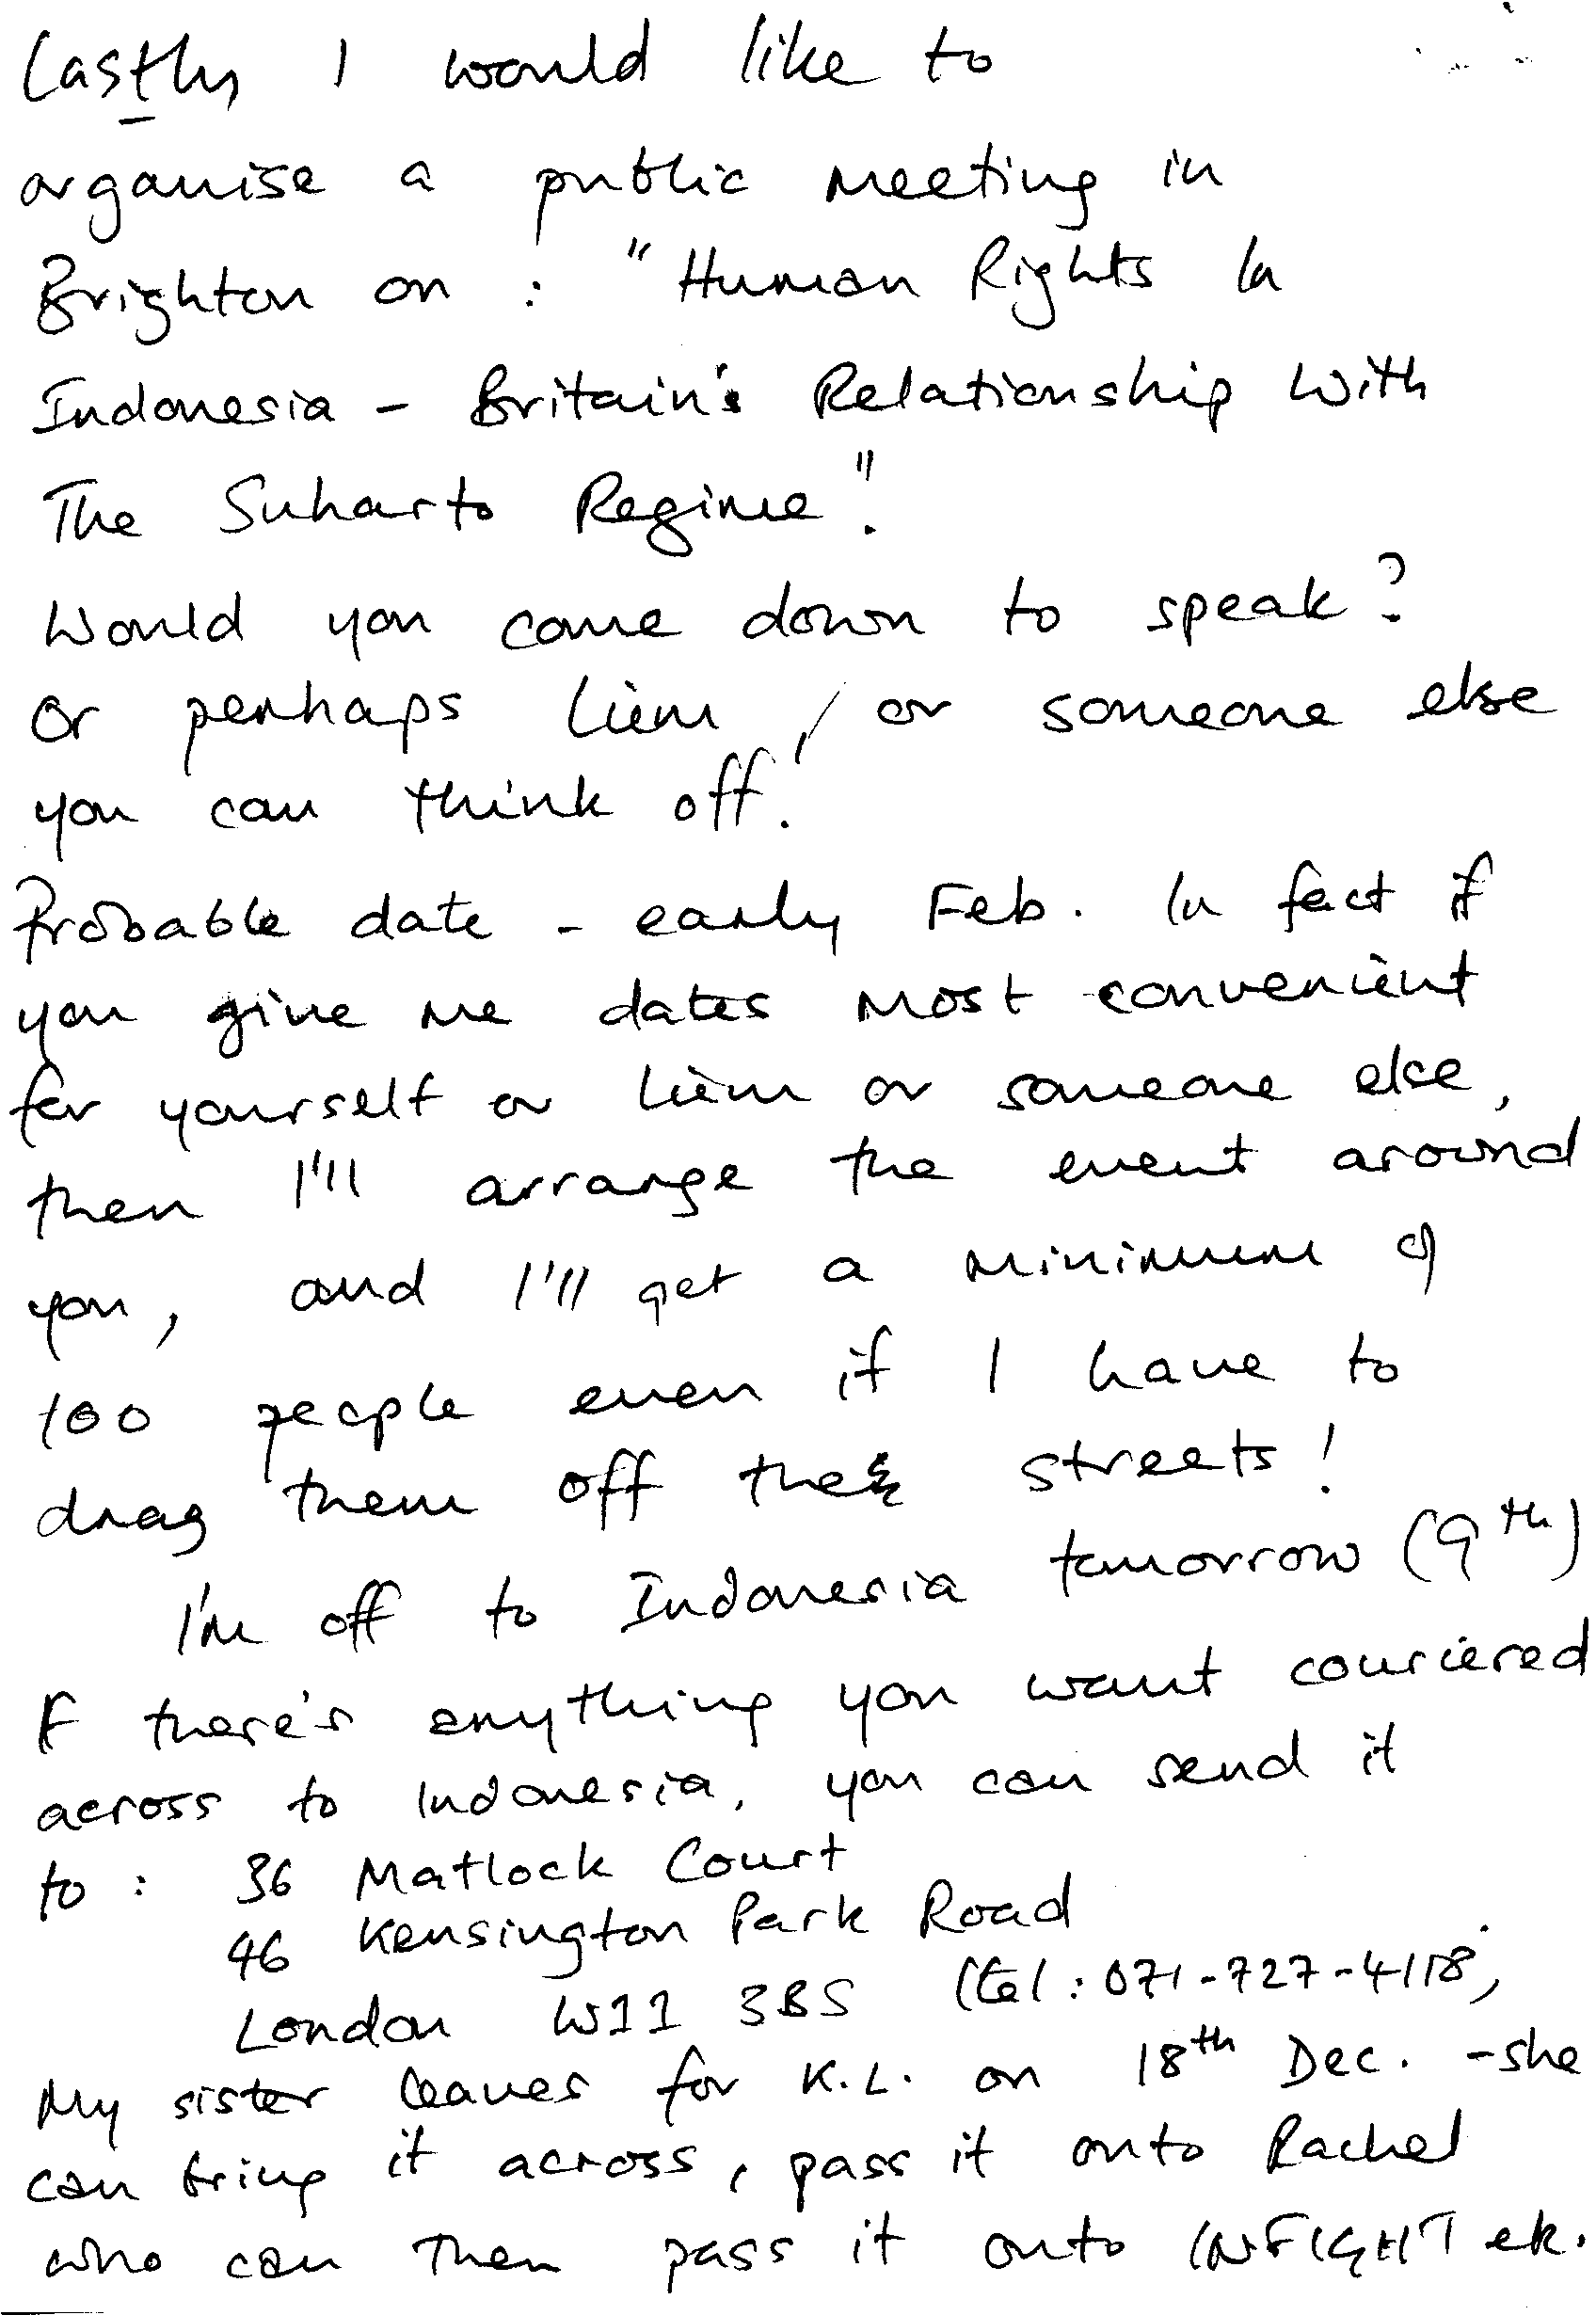 Lastly I would like to
organise a public meeting in
Brighton on : "Human Rights In
Indonesia - Britain's Relationship With
The Suharto Regime".
Would you come down to speak?
Or perhaps Liem, or someone else
you can think off!
Probable date - early Feb. In fact if
you give me dates most convenient
for yourself or Liem or someone else,
then I'll arrange the event around
you, and I'll get a minimum of
100 people even if I have to
drag them off the streets!
I'm off to Indonesia tomorrow (9th)
If there's anything you want couriered
across to Indonesia, you can send it
to : 36 Matlock Court
46 Kensington Park Road
London W11 3BS (tel: 071-727-4118)
My sister leaves for K.L. on 18th Dec. - she
can bring it across, pass it onto Rachel
who can then pass it onto INFIGHT etc.